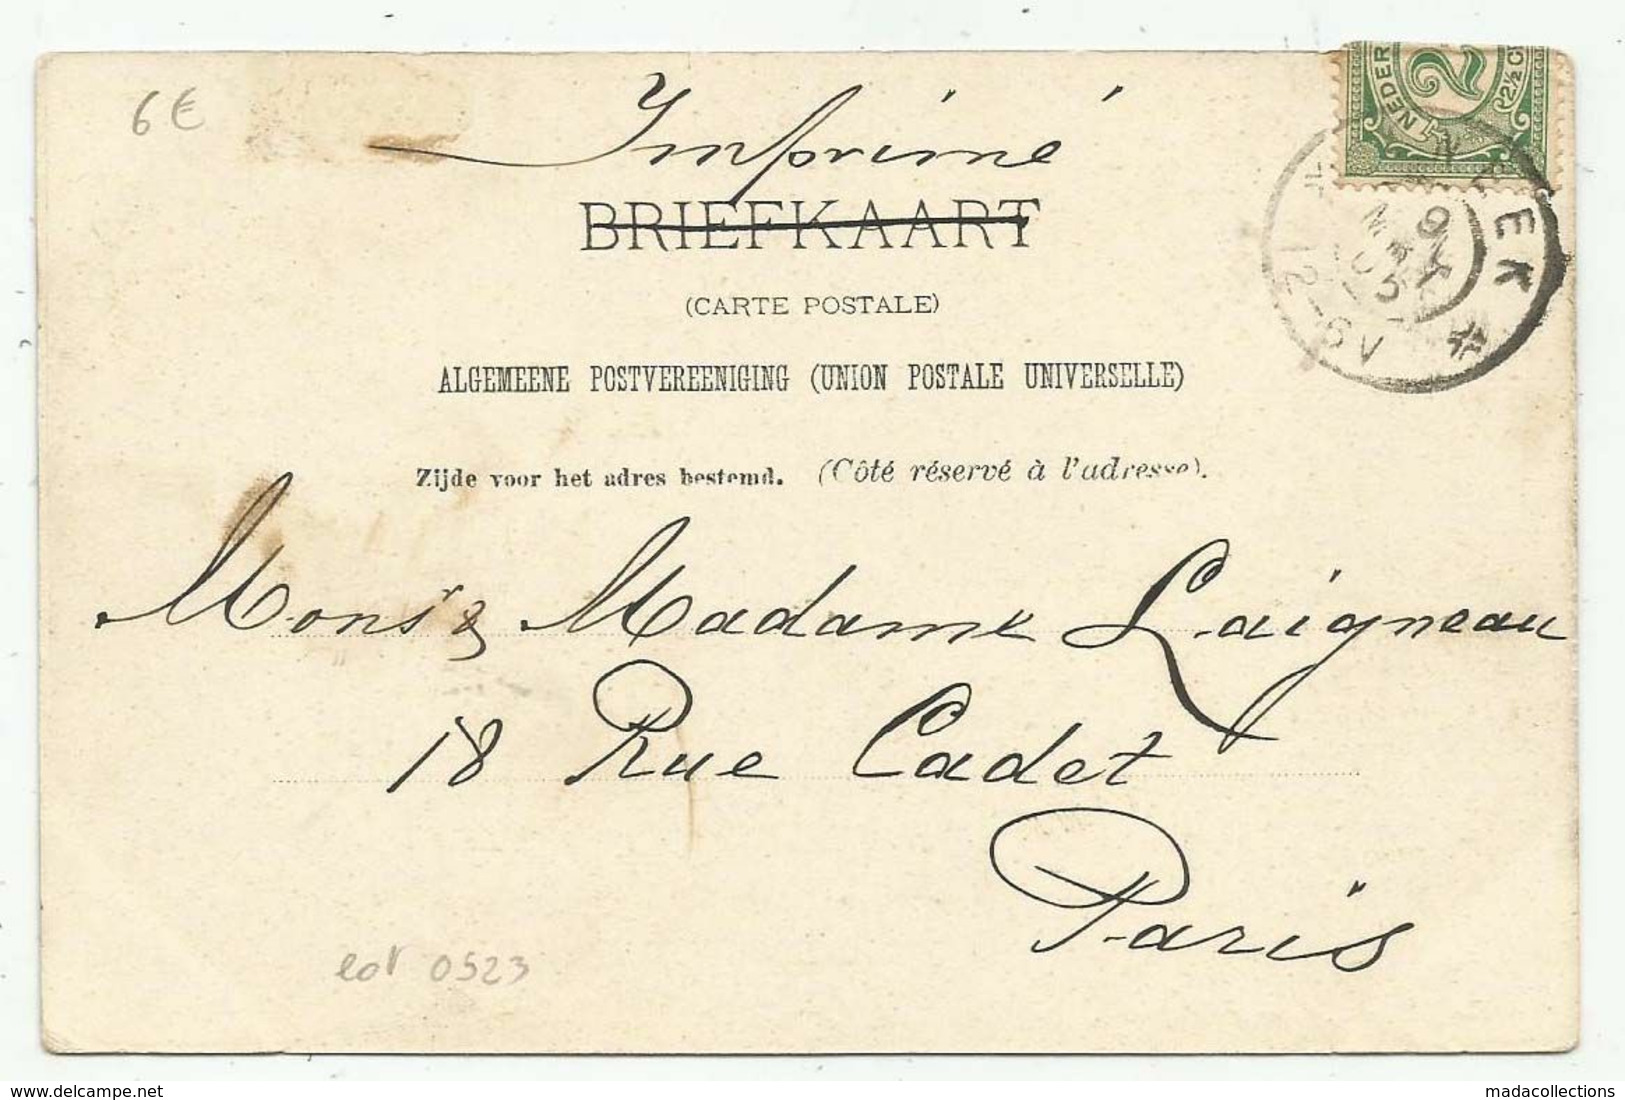 6€
Imprimé
BRIEFKAART
(CARTE POSTALE)
ALGEMEENE POSTVEREENIGING (UNION POSTALE UNIVERSELLE)
Zijde voor het adres bestemd. (Côté réservé à l'adresse).
NEDER
2
2½ C
EK
12-
Mons & Madame Laigneau
18 Rue Cadet
Paris
0523
www.delcampe.net
madacollections